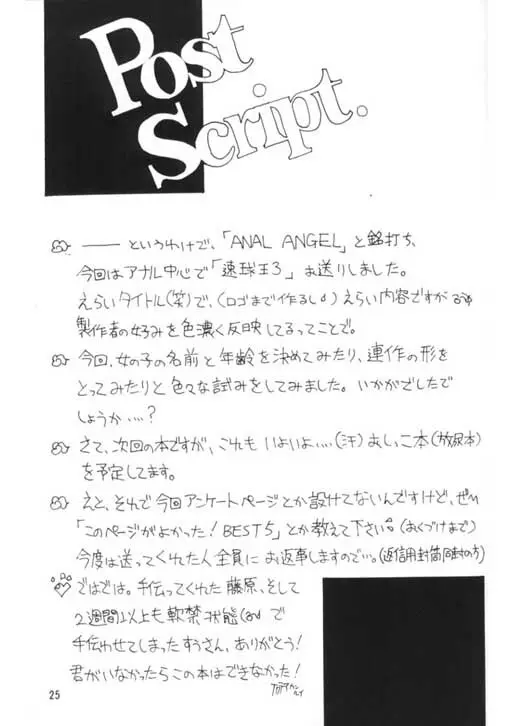 Post
Script.
——というわけで、「ANAL ANGEL」と銘打ち、
今回はアナル中心で「速球王3」お送りしました。
えらいタイトル(笑)で、(ロゴまで作るし)えらい内容ですが
製作者の好みを色濃く反映してるってことで。
今回、女の子の名前と年齢を決めてみたり、連作の形を
とってみたりと色々な試みをしてみました。いかがでしたで
しょうか‥‥?
さて、次回の本ですが、これも いよいよ‥‥(汗)おしっこ本(放尿本)
を予定してます。
えと、それで今回アンケートページとか設けてないんですけど、ぜひ
「このページがよかった!BEST5」とか教えて下さい。(おくづけまで)
今度は送ってくれた人全員にお返事しますので‥。(返信用封筒同封の方)
ではでは。手伝ってくれた藤原、そして
2週間以上も軟禁状態 で
手伝わせてしまったすうさん、ありがとう!
君がいなかったらこの本はできなかった!
25